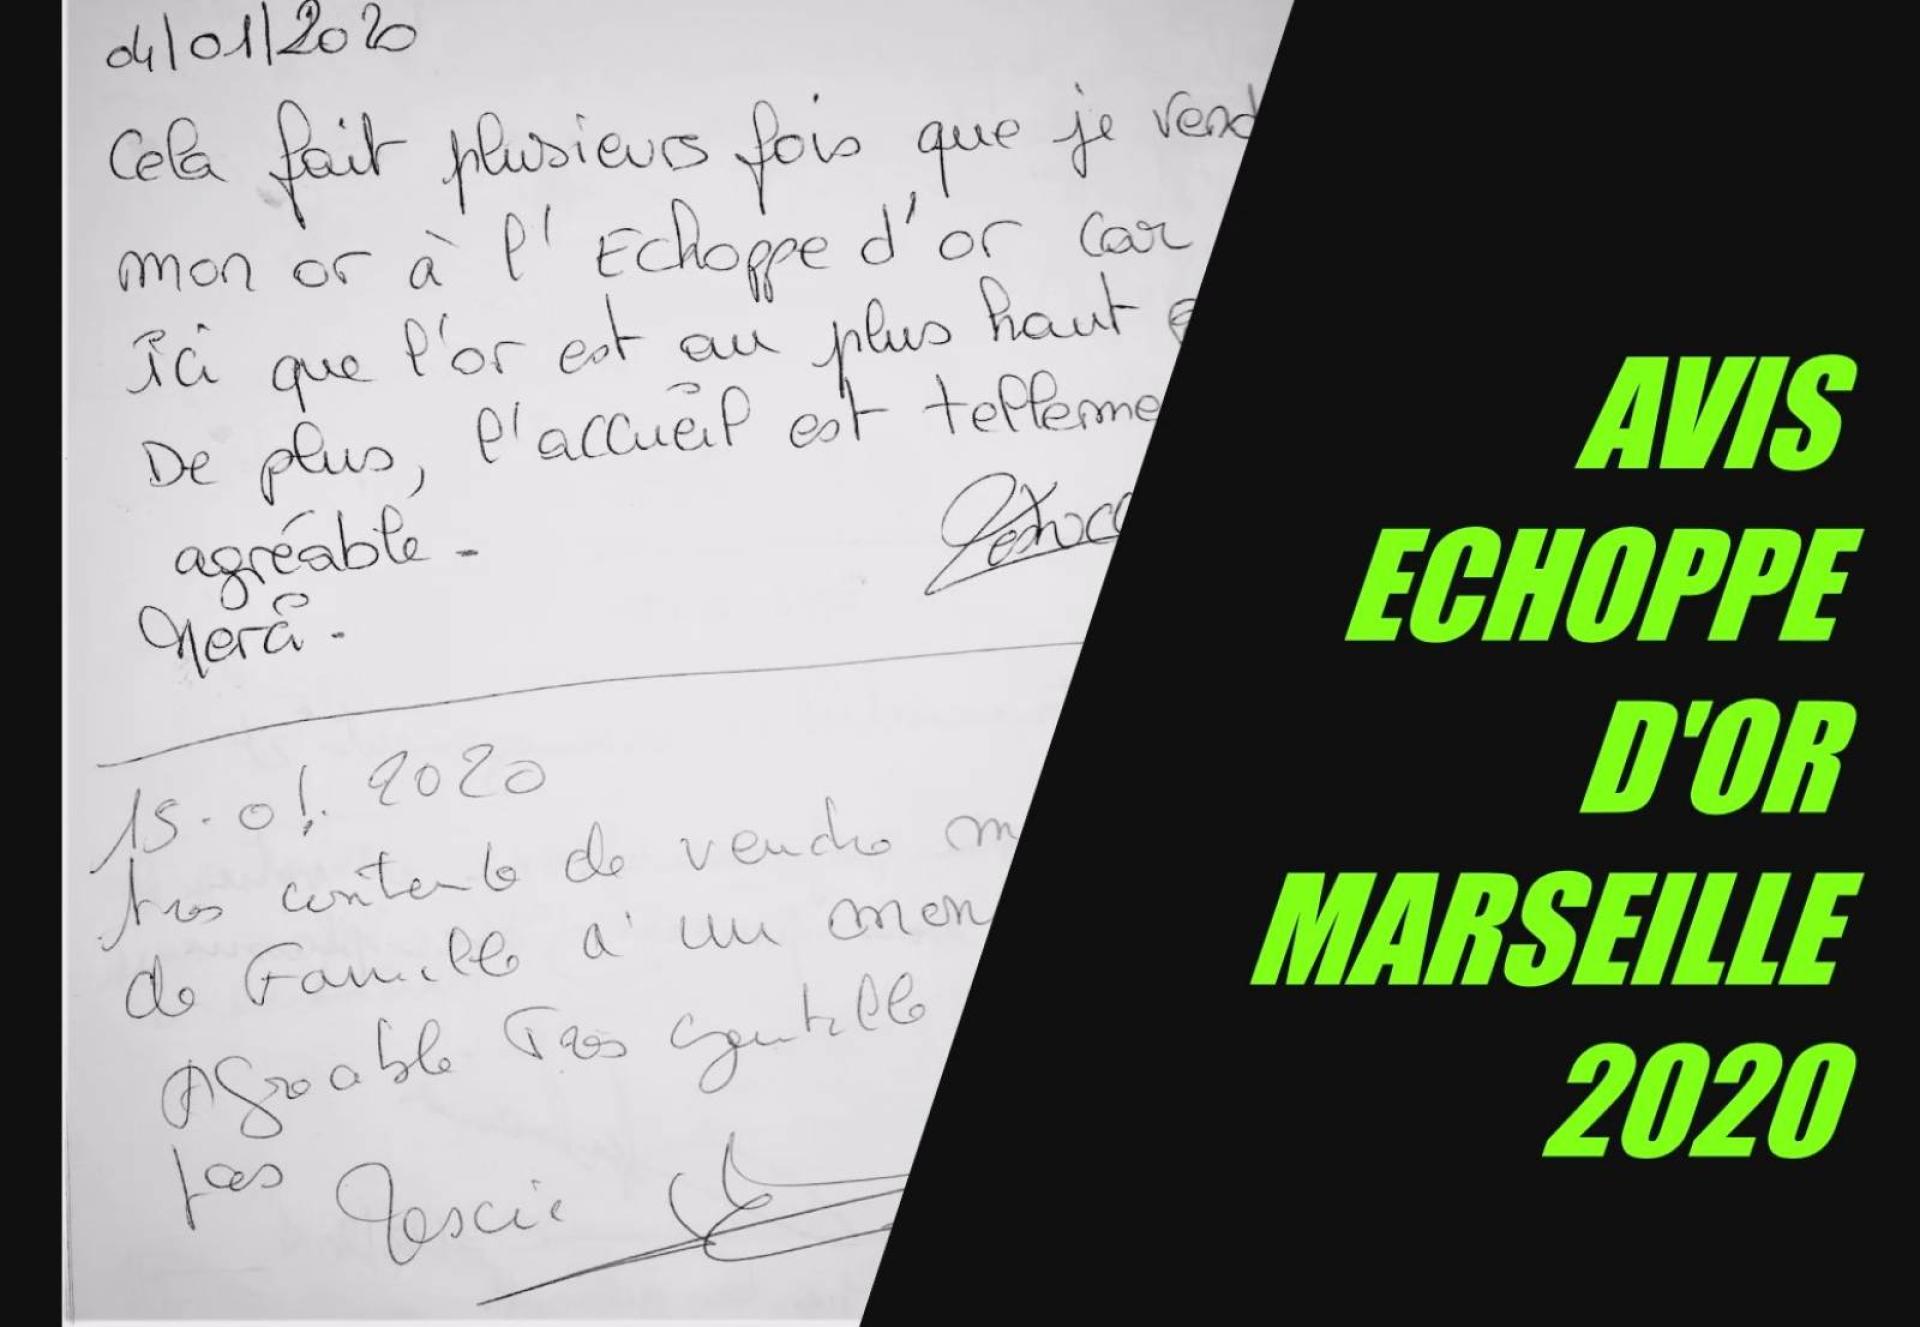 04/01/2020
Cela fait plusieurs fois que je vend
mon or à l'Echoppe d'or car
ici que l'or est au plus haut
De plus, l'accueil est telleme
agréable.
Merci.
15.01.2020
très contente de vendre m
de Famille a un mon
Agreable Tres gentille
pas
AVIS
ECHOPPE
D'OR
MARSEILLE
2020